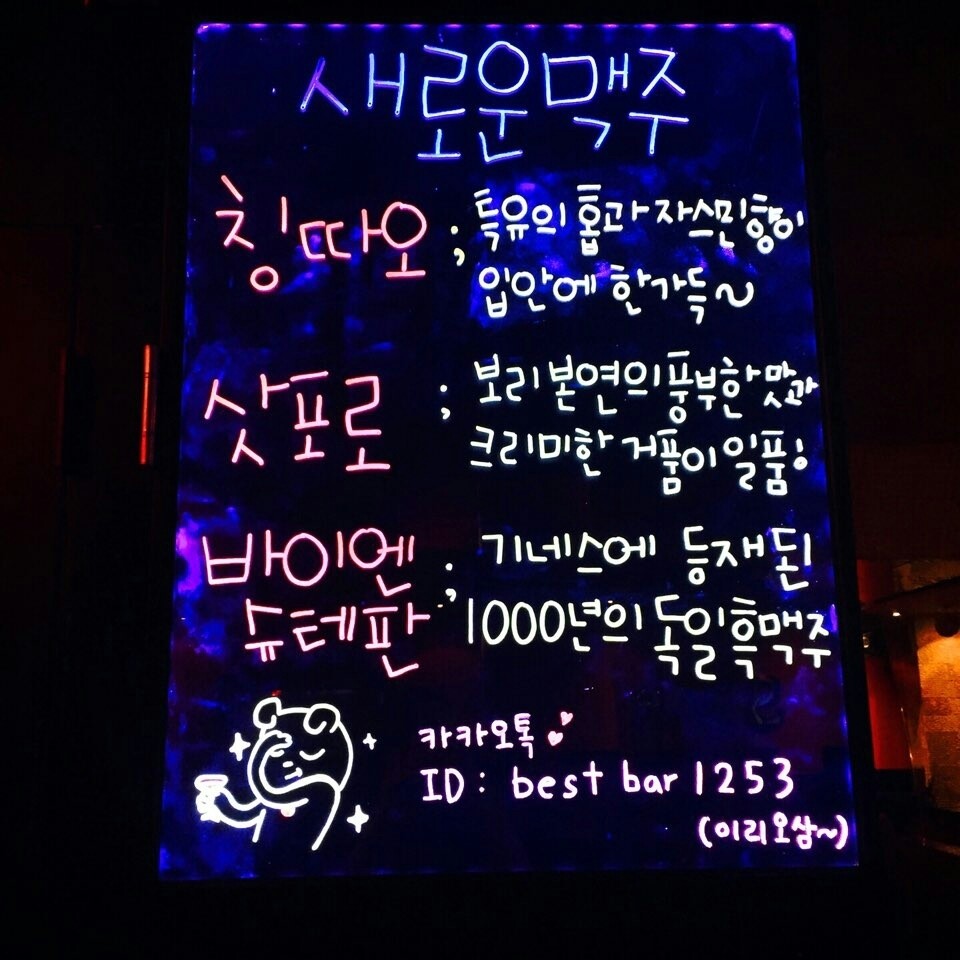 새로운맥주
칭따오 ; 특유의 홉과 자스민향이
입안에 한가득~
삿포로 ; 보리본연의풍부한맛과
크리미한 거품이일품!
바이엔 ; 기네스에 등재된
슈테판 1000년의 독일흑맥주
카카오톡
ID : best bar 1253
(이리오삼~)